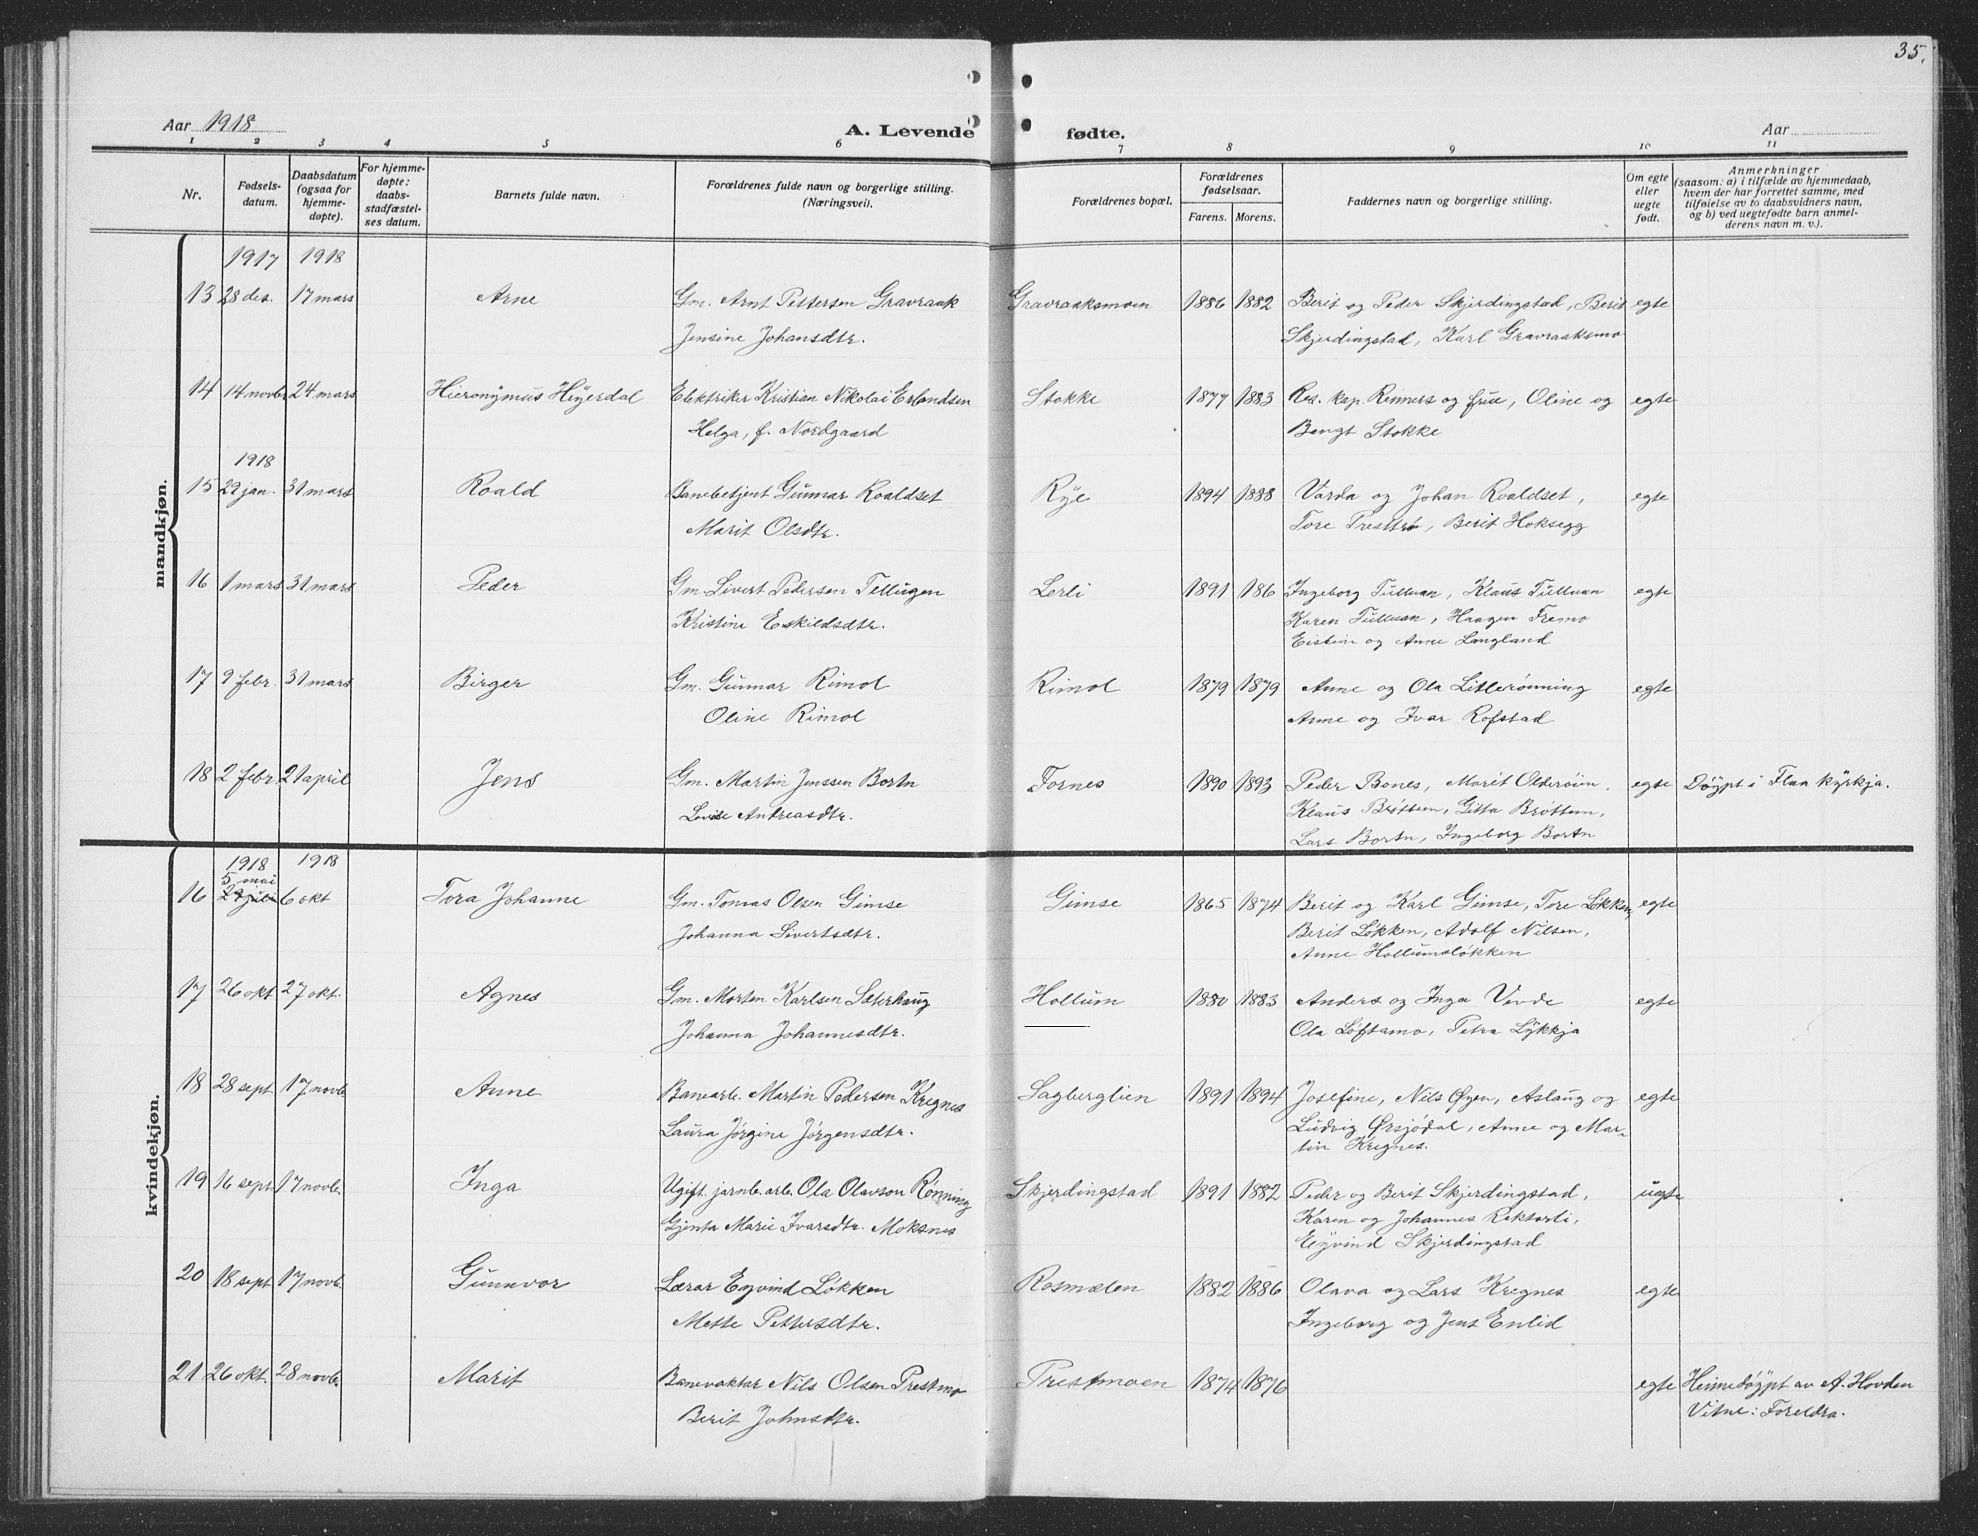 35.
Aar 1918
A. Levende fødte.
Aar
1 2 3 4 5 6 7 8 9 10 11
Nr.
Fødsels-
datum.
Daabsdatum
(ogsaa for
hjemme-
døpte).
For hjemme-
døpte:
daabs-
stadfæstel-
ses datum.
Barnets fulde navn.
Forældrenes fulde navn og borgerlige stilling.
(Næringsvei).
Forældrenes bopæl.
Forældrenes
fødselsaar.
Farens. Morens.
Faddernes navn og borgerlige stilling.
Om egte
eller
uegte
født.
Anmerkninger
(saasom: a) i tilfælde av hjemmedaab,
hvem der har forrettet samme, med
tilføielse av to daabsvidners navn,
og b) ved uegtefødte barn anmel-
derens navn m. v.).
mandkjøn.
1917 1918
13 28 des. 17 mars Arne Gm. Arnt Pettersen Gravraak Gravraaksmoen 1886 1882 Berit og Peder Skjerdingstad, Berit egte
Jensine Johansdtr. Skjerdingstad, Karl Gravraaksmo
14 14 novbr 24 mars Hieronymus Heyerdal Elektriker Kristian Nikolai Erlandsen Stokke 1877 1883 Res. kap. Rinners og frue, Oline og egte
Helga, f. Nordgaard Bengt Stokke
1918
15 29 jan. 31 mars Roald Banebetjent Gunnar Roaldset Rye 1894 1888 Varda og Johan Roaldset, egte
Marit Olsdtr. Tore Presttrø, Berit Hoksegg
16 1 mars 31 mars Peder Gm. Sivert Pedersen Tellugen Lerli 1891 186 Ingeborg Tulluan, Klaus Tulluan egte
Kristine Eskildsdtr. Karen Tulluan, Haagen Fremo
Eistein og Anne Langland
17 9 febr. 31 mars Birger Gm. Gunnar Rimol Rimol 1879 1879 Anne og Ola Litlerønning egte
Oline Rimol Anne og Ivar Rofstad
18 2 febr. 21 april Jens Gm. Martin Jenssen Bortn Fornes 1890 1893 Peder Bones, Marit Olderøien. egte Døypt i Flaa kyrkja.
Lovise Andreasdtr. Klaus Brøttem, Gitta Brøttem,
Lars Bortn, Ingeborg Bortn
kvindekjøn.
1918 1918
5 mai
16 29 juli 6 okt Tora Johanne Gm. Tomas Olsen Gimse Gimse 1865 1874 Berit og Karl Gimse, Tore Løkken, egte
Johanna Sivertsdtr. Berit Løkken, Adolf Nilsen,
Anne Hollumsløkken
17 26 okt 27 okt. Agnes Gm. Morten Karlsen Sæterhaug Hollum 1880 1883 Anders og Inga Vende egte
Johanna Johannesdtr. Ola Løftamo, Petra Lykkja
18 28 sept. 17 novb. Anne Banearb. Martin Pedersen Kregnes Sagberglien 1891 1894 Josefine, Nils Øyen, Aslaug og egte
Laura Jørgine Jørgensdtr. Ludvig Ørsjødal, Anne og Mar-
tin Kregnes.
19 16 sept. 17 novb. Inga Ugift. jarnb. arb. Ola Olavson Rønning Skjerdingstad 1891 1882 Peder og Berit Skjerdingstad, uegte
Gjenta Marie Ivarsdtr. Moksnes Karen og Johannes Rektorli,
Eyvind Skjerdingstad
20 18 sept 17 novb. Gunnvor Lærar Eyvind Løkken Rosmælen 1882 1886 Olava og Lars Kregnes egte
Mette Pettersdtr. Ingeborg og Jens Enlid
21 26 okt. 28 novb. Marit Banevaktar Nils Olsen Prestmo Prestmoen 1874 1876 egte Heimedøypt av A. Hovden
Berit Johnsdtr. Vitne: Foreldra.